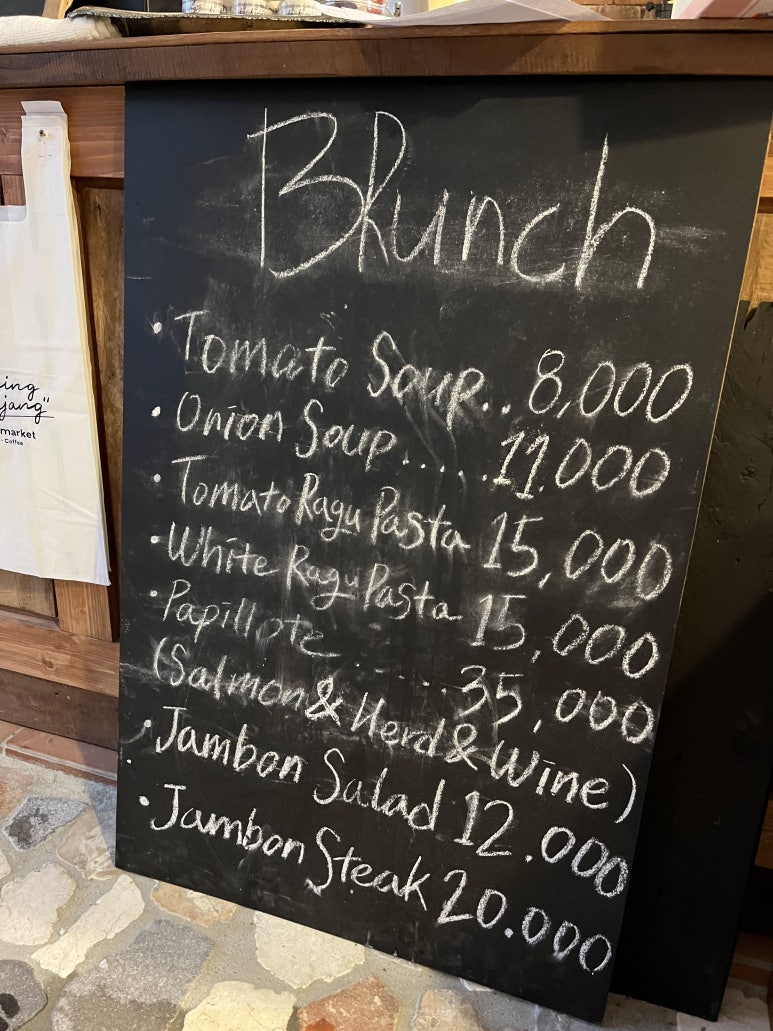 Brunch
· Tomato Soup.. 8,000
· Onion Soup..... 11.000
· Tomato Ragu Pasta 15,000
· White Ragu Pasta 15,000
· Papillote ...... 35,000
(Salmon & Herd & Wine)
· Jambon Salad 12.000
· Jambon Steak 20.000
ing
jang"
market
Coffee